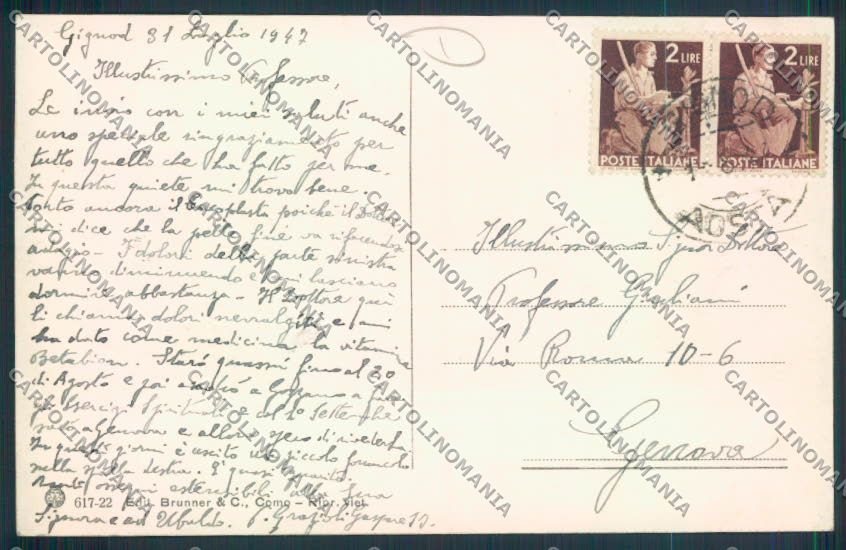 Gignod 31 Luglio 1947
Illustrissimo Professore,
Le invio con i miei saluti anche
uno speciale ringraziamento per
tutto quello che ha fatto per me.
In questa quiete mi trovo bene.
Porto ancora il poiché il Dottore
mi dice che la pelle fine va rifacendosi
adagio - I dolori della parte sinistra
vanno diminuendo e mi lasciano
dormire abbastanza - Il Dottore qui
li chiama dolori nevralgici e mi
ha dato come medicina la vitamina
Betabion. Starò quassù fino al 20
di Agosto e poi andrò a Gozzano a fare
gli Esercizi Spirituali e col 1° Settembre
sarò a Genova e allora spero di rivederla
In questi giorni è uscito un piccolo foruncolo
nella spalla destra. È quasi
ossequi estensibili alla Sua
Signora e ad Ubaldo. P. Grazioli Gaspare S.J.
617-22 Edit. Brunner & C., Como - Ripr. Viet.
2 LIRE
POSTE ITALIANE
2 LIRE
POSTE ITALIANE
GIGNOD
AOSTA
Illustrissimo Signor Dottore
Professore Gragliani
Via Roma 10-6
Genova
CARTOLINOMANIA